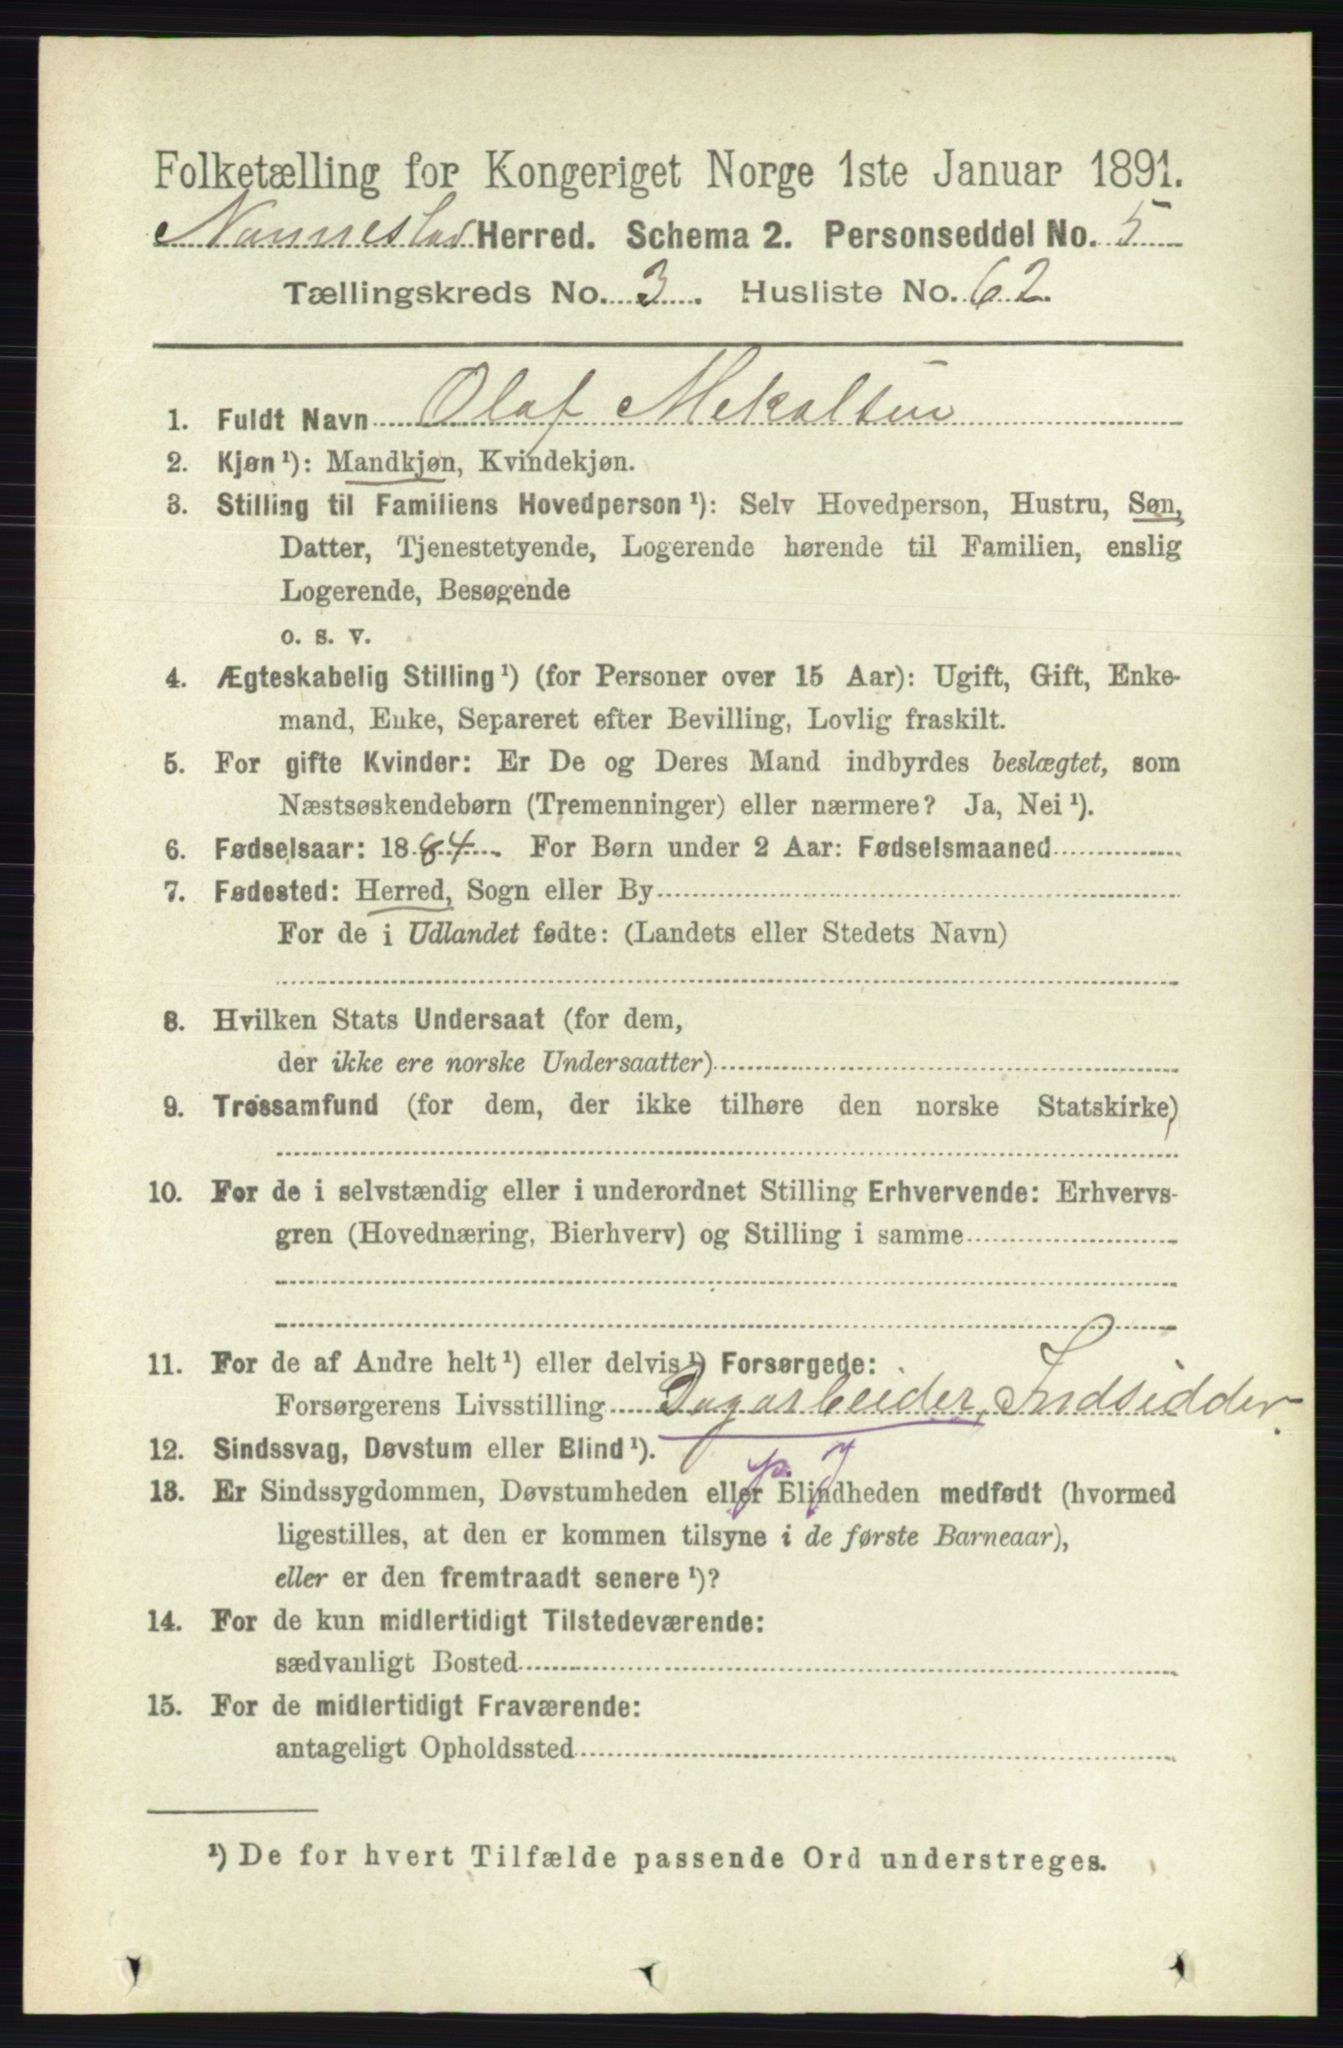 Folketælling for Kongeriget Norge 1ste Januar 1891.
Nannestad Herred. Schema 2. Personseddel No. 5
Tællingskreds No. 3. Husliste No. 62.
1. Fuldt Navn Olaf Mekalsen
2. Kjøn¹): Mandkjøn, Kvindekjøn.
3. Stilling til Familiens Hovedperson¹): Selv Hovedperson, Hustru, Søn,
Datter, Tjenestetyende, Logerende hørende til Familien, enslig
Logerende, Besøgende
o. s. v.
4. Ægteskabelig Stilling¹) (for Personer over 15 Aar): Ugift, Gift, Enke-
mand, Enke, Separeret efter Bevilling, Lovlig fraskilt.
5. For gifte Kvinder: Er De og Deres Mand indbyrdes beslægtet, som
Næstsøskendebørn (Tremenninger) eller nærmere? Ja, Nei¹).
6. Fødselsaar: 1884. For Børn under 2 Aar: Fødselsmaaned
7. Fødested: Herred, Sogn eller By
For de i Udlandet fødte: (Landets eller Stedets Navn)
8. Hvilken Stats Undersaat (for dem,
der ikke ere norske Undersaatter)
9. Trossamfund (for dem, der ikke tilhøre den norske Statskirke)
10. For de i selvstændig eller i underordnet Stilling Erhvervende: Erhvervs-
gren (Hovednæring, Bierhverv) og Stilling i samme
11. For de af Andre helt¹) eller delvis¹) Forsørgede:
Forsørgerens Livsstilling Dagarbeider, Indsidder.
12. Sindssvag, Døvstum eller Blind¹).
13. Er Sindssygdommen, Døvstumheden eller Blindheden medfødt (hvormed
ligestilles, at den er kommen tilsyne i de første Barneaar),
eller er den fremtraadt senere¹)?
14. For de kun midlertidigt Tilstedeværende:
sædvanligt Bosted
15. For de midlertidigt Fraværende:
antageligt Opholdssted
¹) De for hvert Tilfælde passende Ord understreges.